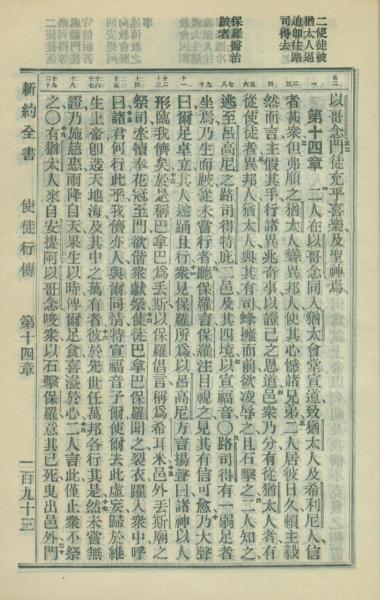 二使徒被
猶太人逼
迫卽往路
司得去
保羅醫治
跛者
以哥念門徒充乎喜樂及聖神焉
第十四章 二人在以哥念同入猶太會堂宣道致猶太人及希利尼人信
者甚衆但弗順之猶太人聳異邦人使其心憾諸兄弟二人居彼日久賴主毅
然而言主假其手行諸異兆奇事以證己之恩道邑衆乃分有從猶太人者有
從使徒者異邦人猶太人與其有司蜂擁而前欲凌辱之且石擊之二人知之
逃至呂高尼之路司得特庇二邑及其四境以宣福音〇路司得有一弱足者
坐焉乃生而跛從未行者聽保羅言保羅注目視之見其有信可愈乃大聲
曰爾足卓立其人遂踊且行衆見保羅所爲以呂高尼方言揚聲曰諸神以人
形臨我儕矣於是稱巴拿巴爲丟斯以保羅倡言稱爲希耳米邑外丟斯廟之
祭司牽犢奉花冠至門欲偕衆獻祭使徒巴拿巴保羅聞之裂衣躍入衆中呼
曰諸君何行此乎我儕亦人與爾同情特宣福音于爾使爾去此虛妄歸於維
生上帝卽造天地海及其中之萬有者彼於先世任萬邦各行其是然未嘗無
證乃施慈惠雨降自天果生以時俾爾足食喜溢於心二人言此僅止衆不祭
之〇有猶太人來自安提阿以哥念唆衆以石擊保羅意其已死曳出邑外門
新約全書 使徒行傳 第十四章 一百九十三